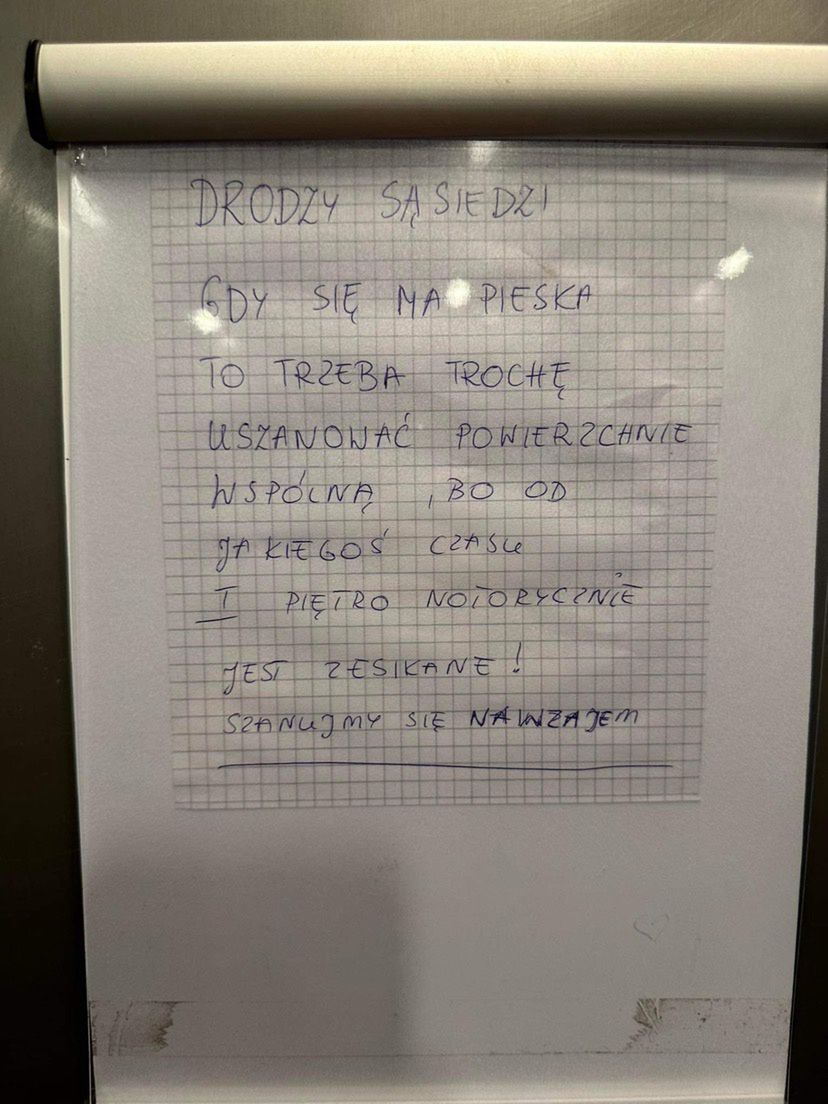 DRODZY SĄSIEDZI
GDY SIĘ MA PIESKA
TO TRZEBA TROCHĘ
USZANOWAĆ POWIERZCHNIE
WSPÓLNĄ , BO OD
JAKIEGOŚ CZASU
I PIĘTRO NOTORYCZNIE
JEST ZESIKANE!
SZANUJMY SIĘ NAWZAJEM